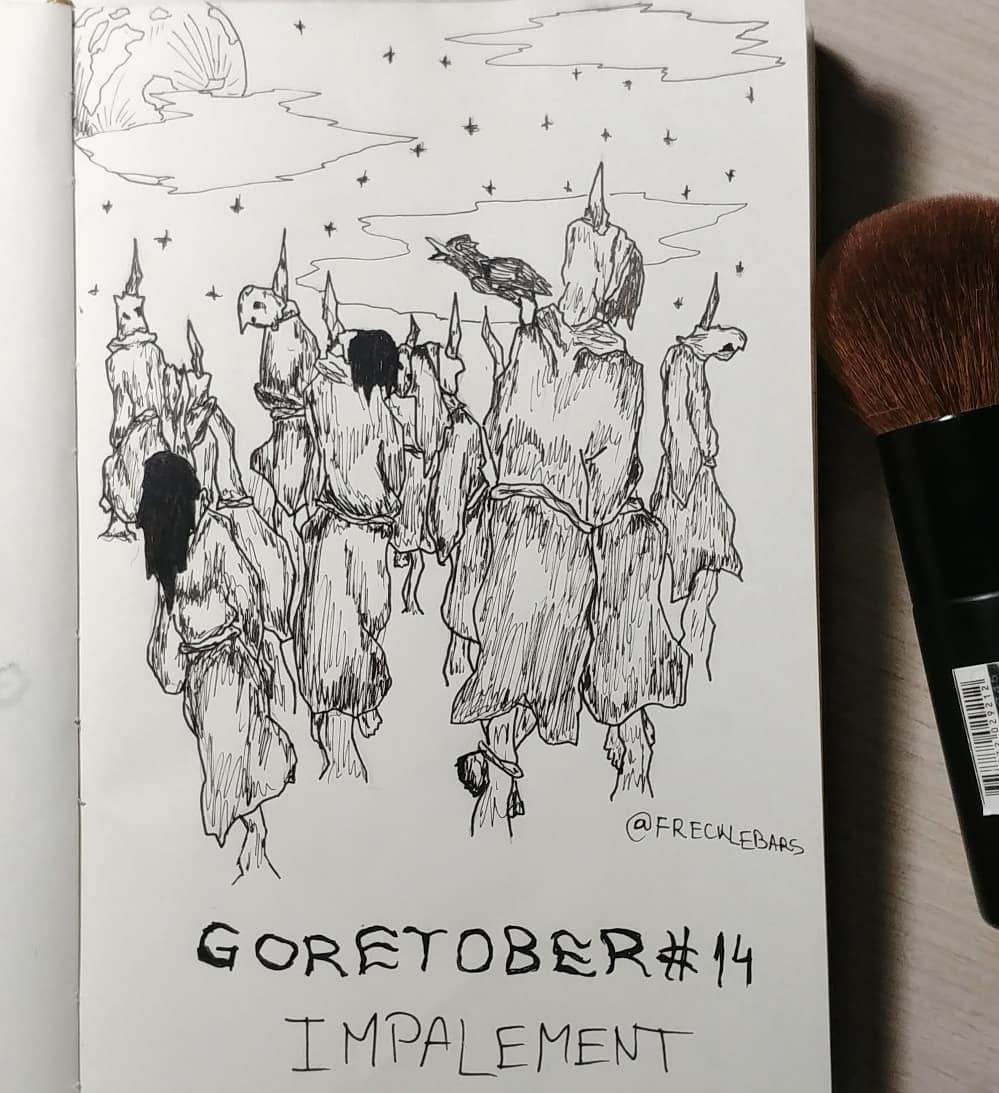 @FRECKLEBARS
GORETOBER#14
IMPALEMENT